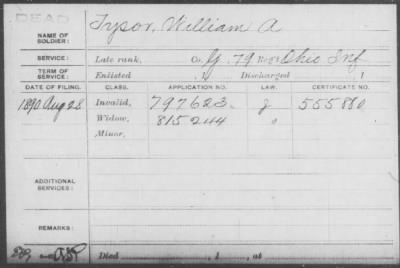 DEAD
NAME OF SOLDIER: Tysor, William A
SERVICE: Late rank, Co. G, 79 Reg't Ohio Inf
TERM OF SERVICE: Enlisted , 1 Discharged , 1
DATE OF FILING. CLASS. APPLICATION NO. LAW. CERTIFICATE NO.
1890 Aug 28 Invalid, 797623 555880
Widow, 815244
Minor,
ADDITIONAL SERVICES:
REMARKS:
Died , 1 , at